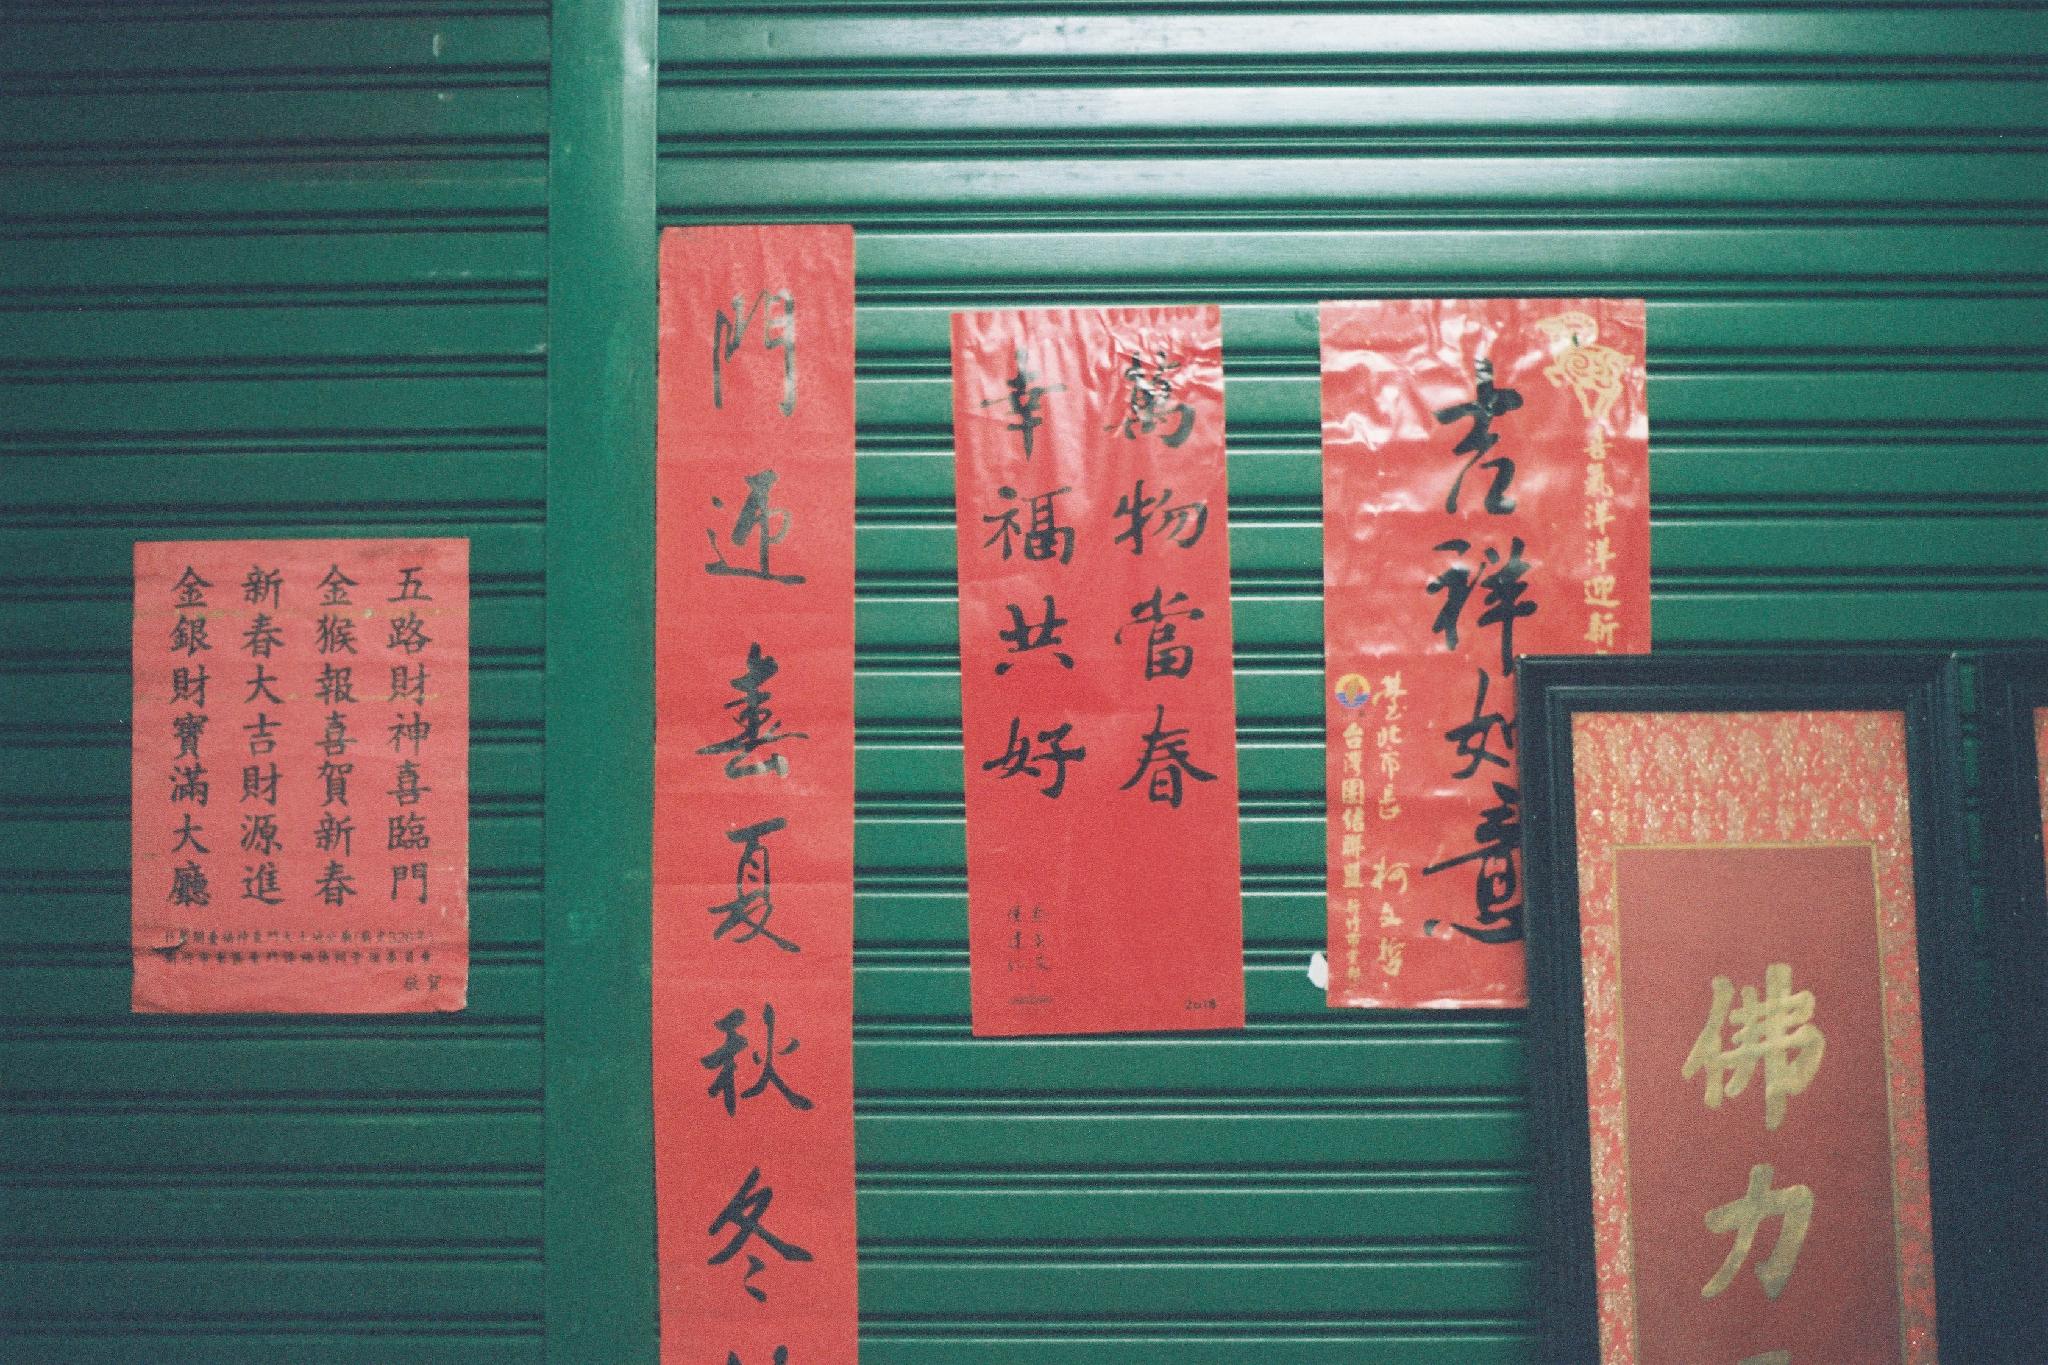 五路財神喜臨門
金猴報喜賀新春
新春大吉財源進
金銀財寶滿大廳
敬賀
門迎春夏秋冬
萬物當春
幸福共好
2018
喜氣洋洋迎新
吉祥如意
臺北市長 柯文哲
台灣團結聯盟
佛力